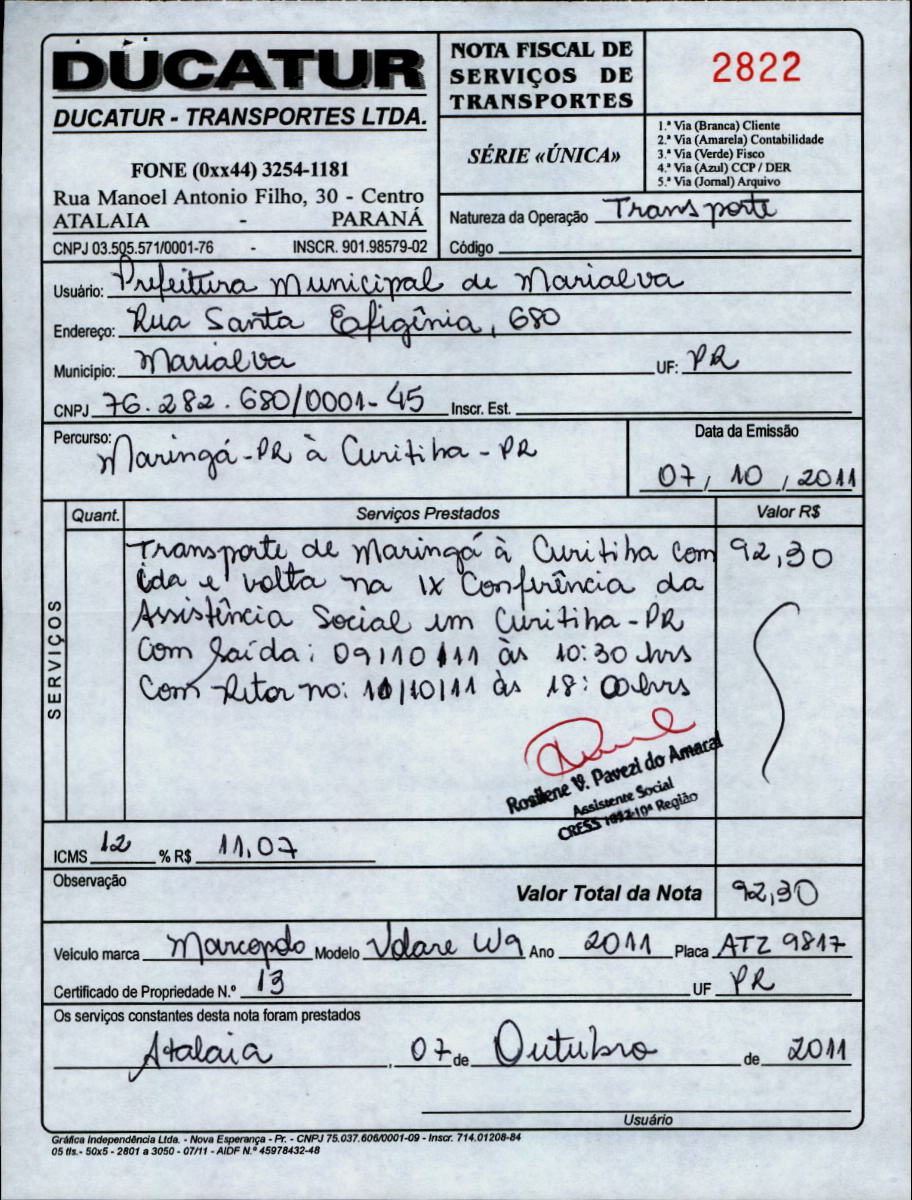 DUCATUR
DUCATUR - TRANSPORTES LTDA.
FONE (0xx44) 3254-1181
Rua Manoel Antonio Filho, 30 - Centro
ATALAIA - PARANÁ
CNPJ 03.505.571/0001-76 - INSCR. 901.98579-02
NOTA FISCAL DE
SERVIÇOS DE
TRANSPORTES
SÉRIE «ÚNICA»
2822
1.ª Via (Branca) Cliente
2.ª Via (Amarela) Contabilidade
3.ª Via (Verde) Fisco
4.ª Via (Azul) CCP / DER
5.ª Via (Jornal) Arquivo
Natureza da Operação Transporte
Código
Usuário: Prefeitura Municipal de Marialva
Endereço: Rua Santa Eafigênia, 680
Municipio: Marialva UF: PR
CNPJ 76.282.680/0001-45 Inscr. Est.
Percurso: Maringá-PR à Curitiba-PR
Data da Emissão
07/10/2011
SERVIÇOS
Quant. Serviços Prestados Valor R$
Transporte de Maringá à Curitiba com 92,30
ida e volta na IX Conferência da
Assistência Social em Curitiba-PR
Com Saída: 09/10/11 às 10:30 hrs
Com Retorno: 11/10/11 às 18:00hrs
Rosilene V. Pavezi do Amaral
Assistente Social
CRESS 10ª Região
ICMS 12 % R$ 11,07
Observação
Valor Total da Nota 92,30
Veiculo marca Marcopolo Modelo Volare W9 Ano 2011 Placa ATZ 9817
Certificado de Propriedade N.º 13 UF PR
Os serviços constantes desta nota foram prestados
Atalaia, 07 de Outubro de 2011
Usuário
Gráfica Independência Ltda. - Nova Esperança - Pr. - CNPJ 75.037.606/0001-09 - Inscr. 714.01208-84
05 tls.- 50x5 - 2801 a 3050 - 07/11 - AIDF N.º 45978432-48